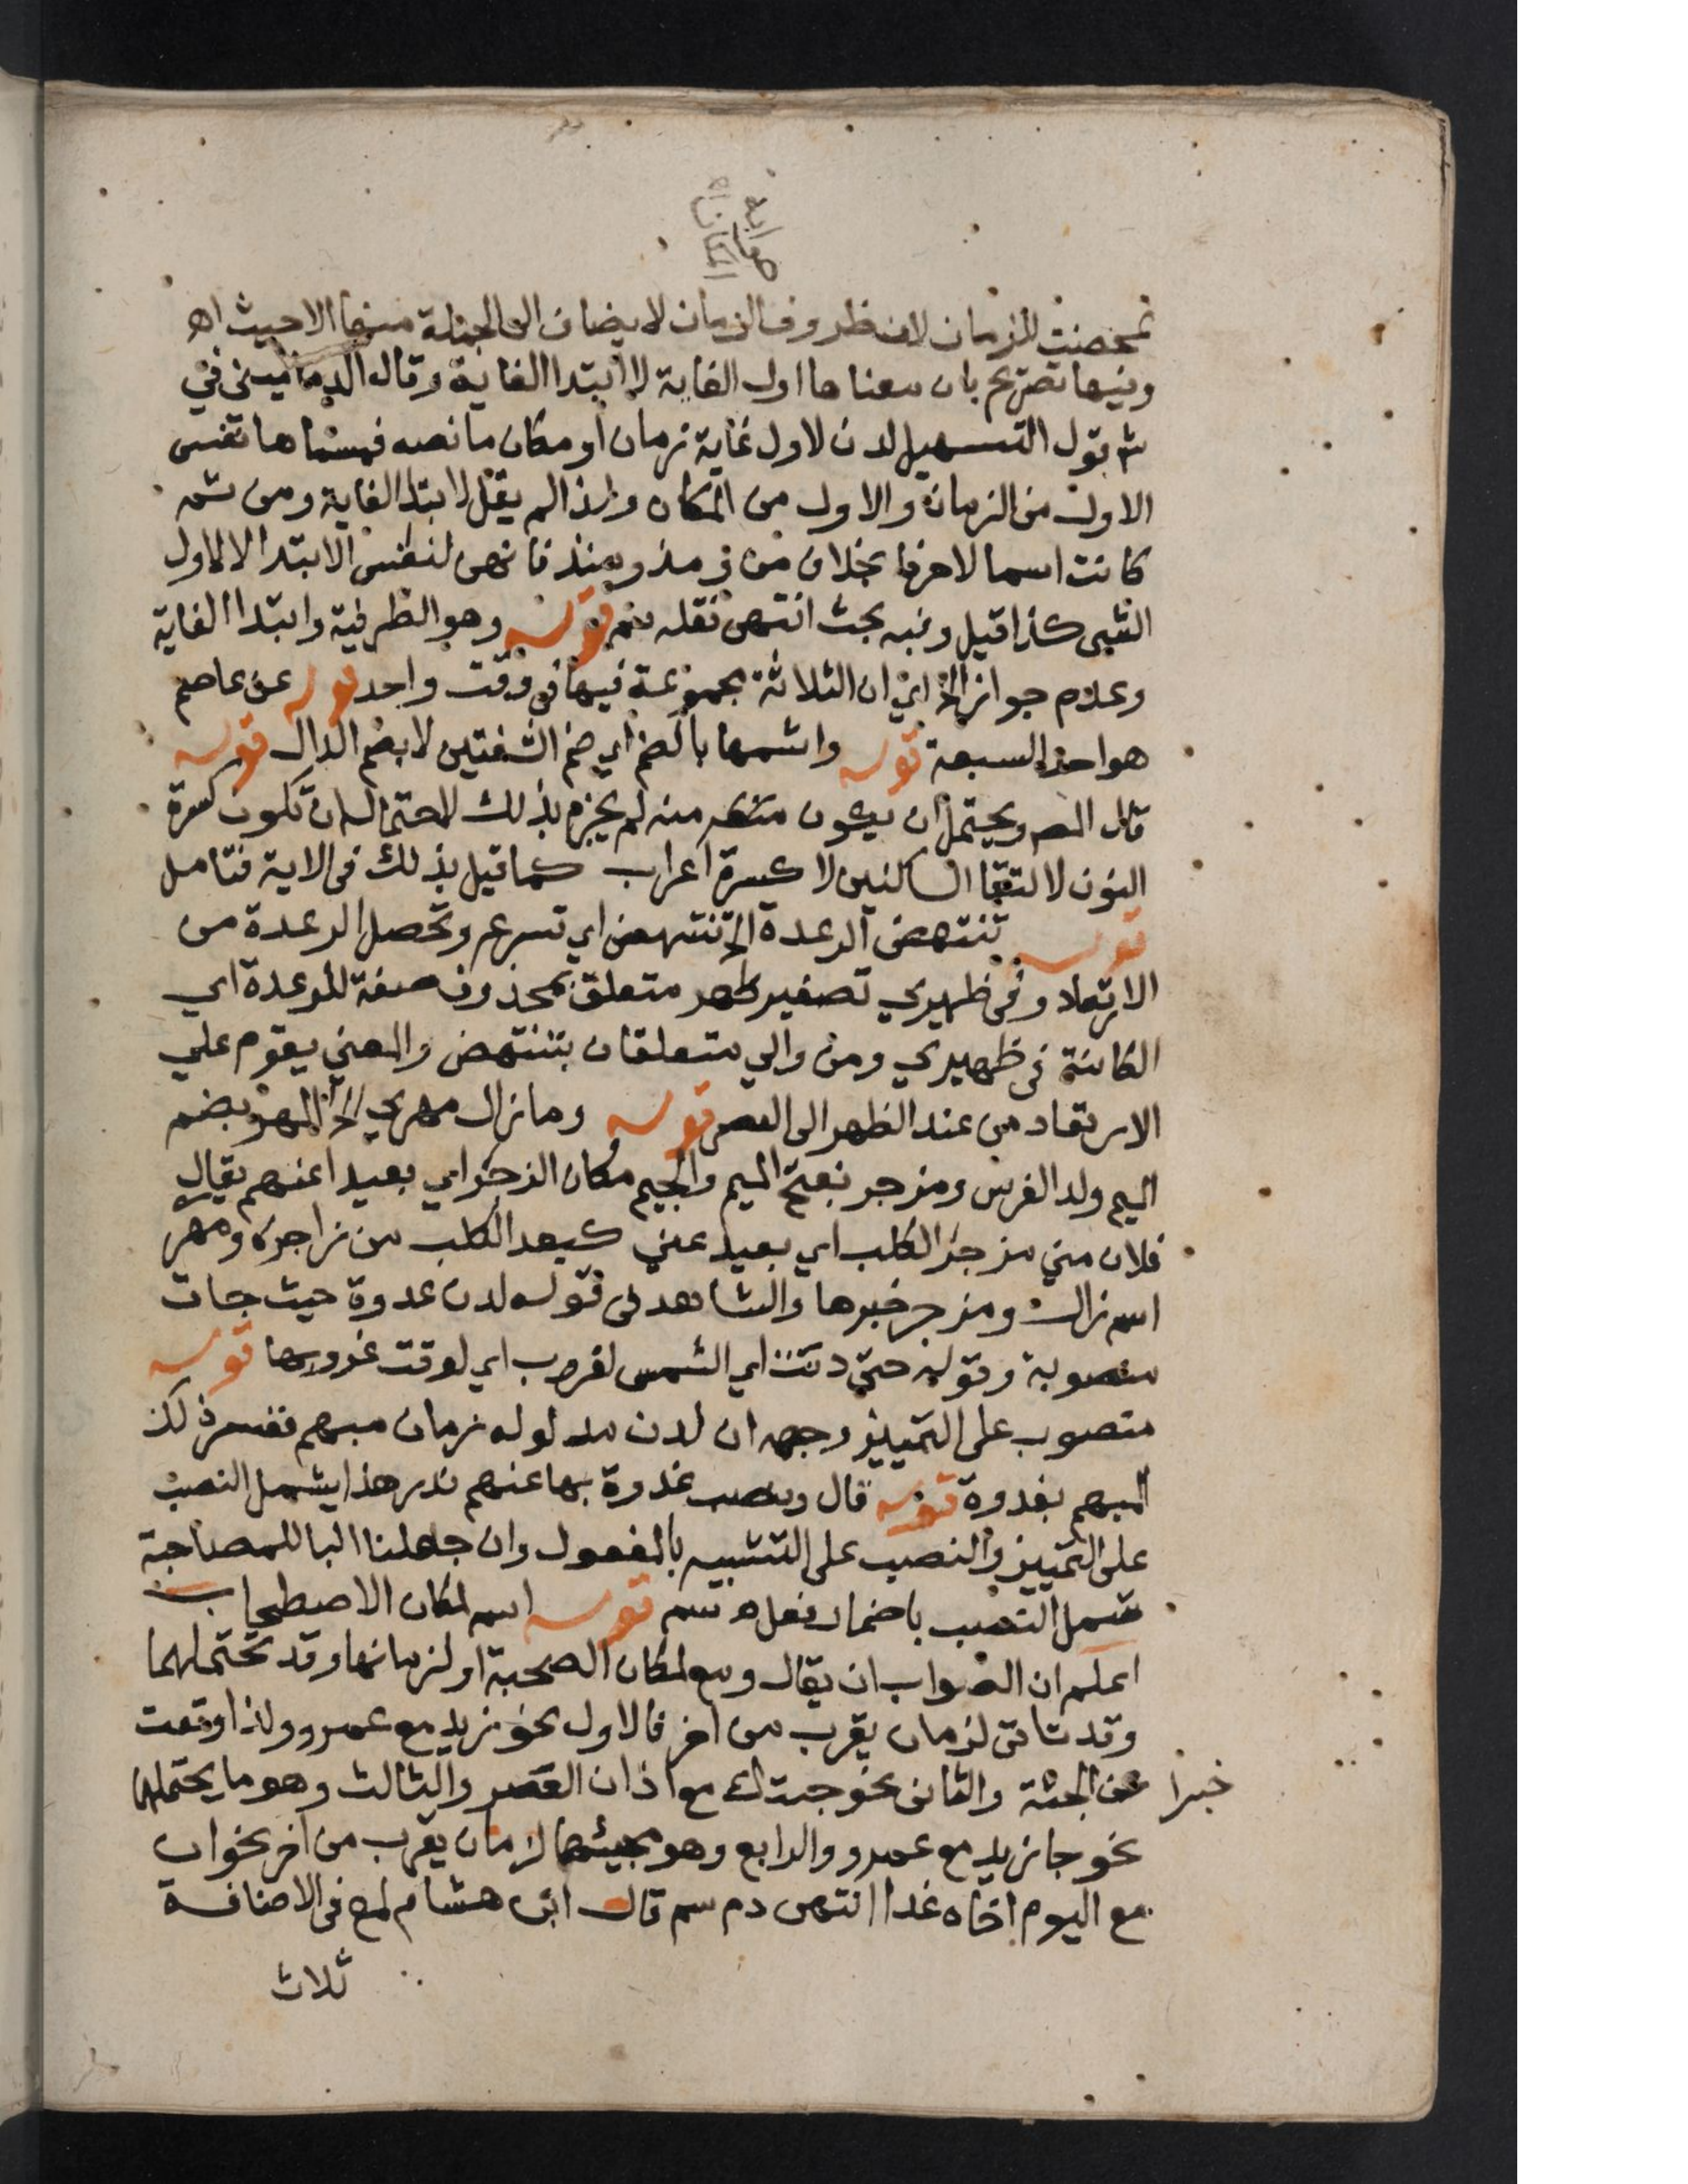 صوابه
الكائناه
تمحضت للزمان لان ظروف الزمان لا يضاف الى الجملة منها الا حيث اهـ
وفيها تصريح بان معناها اول الغاية لا ابتدا الغاية وقال الدماميني في
شرح قول التسهيل لدن لاول غاية زمان او مكان ما نصه فمسماها نفس
الاول من الزمان والاول من المكان ولذا لم يقل لابتدا الغاية ومن ثمه
كانت اسما لا حرفا بخلاف من ومذ ومنذ فانهن لنفس الابتدا لا لاول
الشى كذا قيل وفيه بحث انتهى نقله سم قوله وهو الظرفية وابتدا الغاية
وعدم جواز الخ اي ان الثلاثة مجموعة فيها في وقت واحد قوله عن عاصم
هو احد السبعة قوله واشمها بالضم اي ضم الشفتين لا بضم الدال قوله
قال المص ويحتمل ان يكون منه لم يجزم بذلك لاحتمال ان تكون كسرة
النون لالتقا الساكنين لا كسرة اعراب كما قيل بذلك في الاية فتامل
قوله تنتهض الرعدة الخ تنتهض اي تسرع وتحصل الرعدة من
الارتعاد وفي ظهيري تصغير ظهر متعلق بمحذوف صفة للرعدة اي
الكائنة في ظهيري ومن والي متعلقان بتنتهض والمعني يقوم علي
الارتعاد من عند الظهر الى العصر قوله وما زال مهري الخ المهر بضم
الميم ولد الفرس ومزجر بفتح الميم والجيم مكان الزجر اي بعيدا عنهم يقال
فلان مني مزجر الكلب اي بعيد عني كبعد الكلب من زاجره ومهر
اسم زال ومزجر خبرها والشاهد في قوله لدن غدوة حيث جات
منصوبة وقوله حتي دنت اي الشمس لغروب اي لوقت غروبها قوله
منصوب على التمييز وجهه ان لدن مدلوله زمان مبهم ففسر ذلك
المبهم بغدوة قوله قال ونصب غدوة بها عنهم ندر هذا يشمل النصب
على التمييز والنصب على التشبيه بالمفعول وان جعلنا البا للمصاحبة
شمل النصب باضمار فعل اهـ سم قوله اسم لمكان الاصطحاب
اعلم ان الصواب ان يقال ومع لمكان الصحبة او لزمانها وقد تحتملهما
وقد تاتى لزمان يقرب من اخر فالاول نحو زيد مع عمرو ولذا وقعت
خبرا عن الجثة والثانى نحو جيتك مع اذان العصر والثالث وهو ما يحتملهما
نحو جا زيد مع عمرو والرابع وهو مجيئها لزمان يقرب من اخر نحو ان
مع اليوم اخاه غدا انتهى دم سم قال ابن هشام لمع في الاضافة
ثلاث